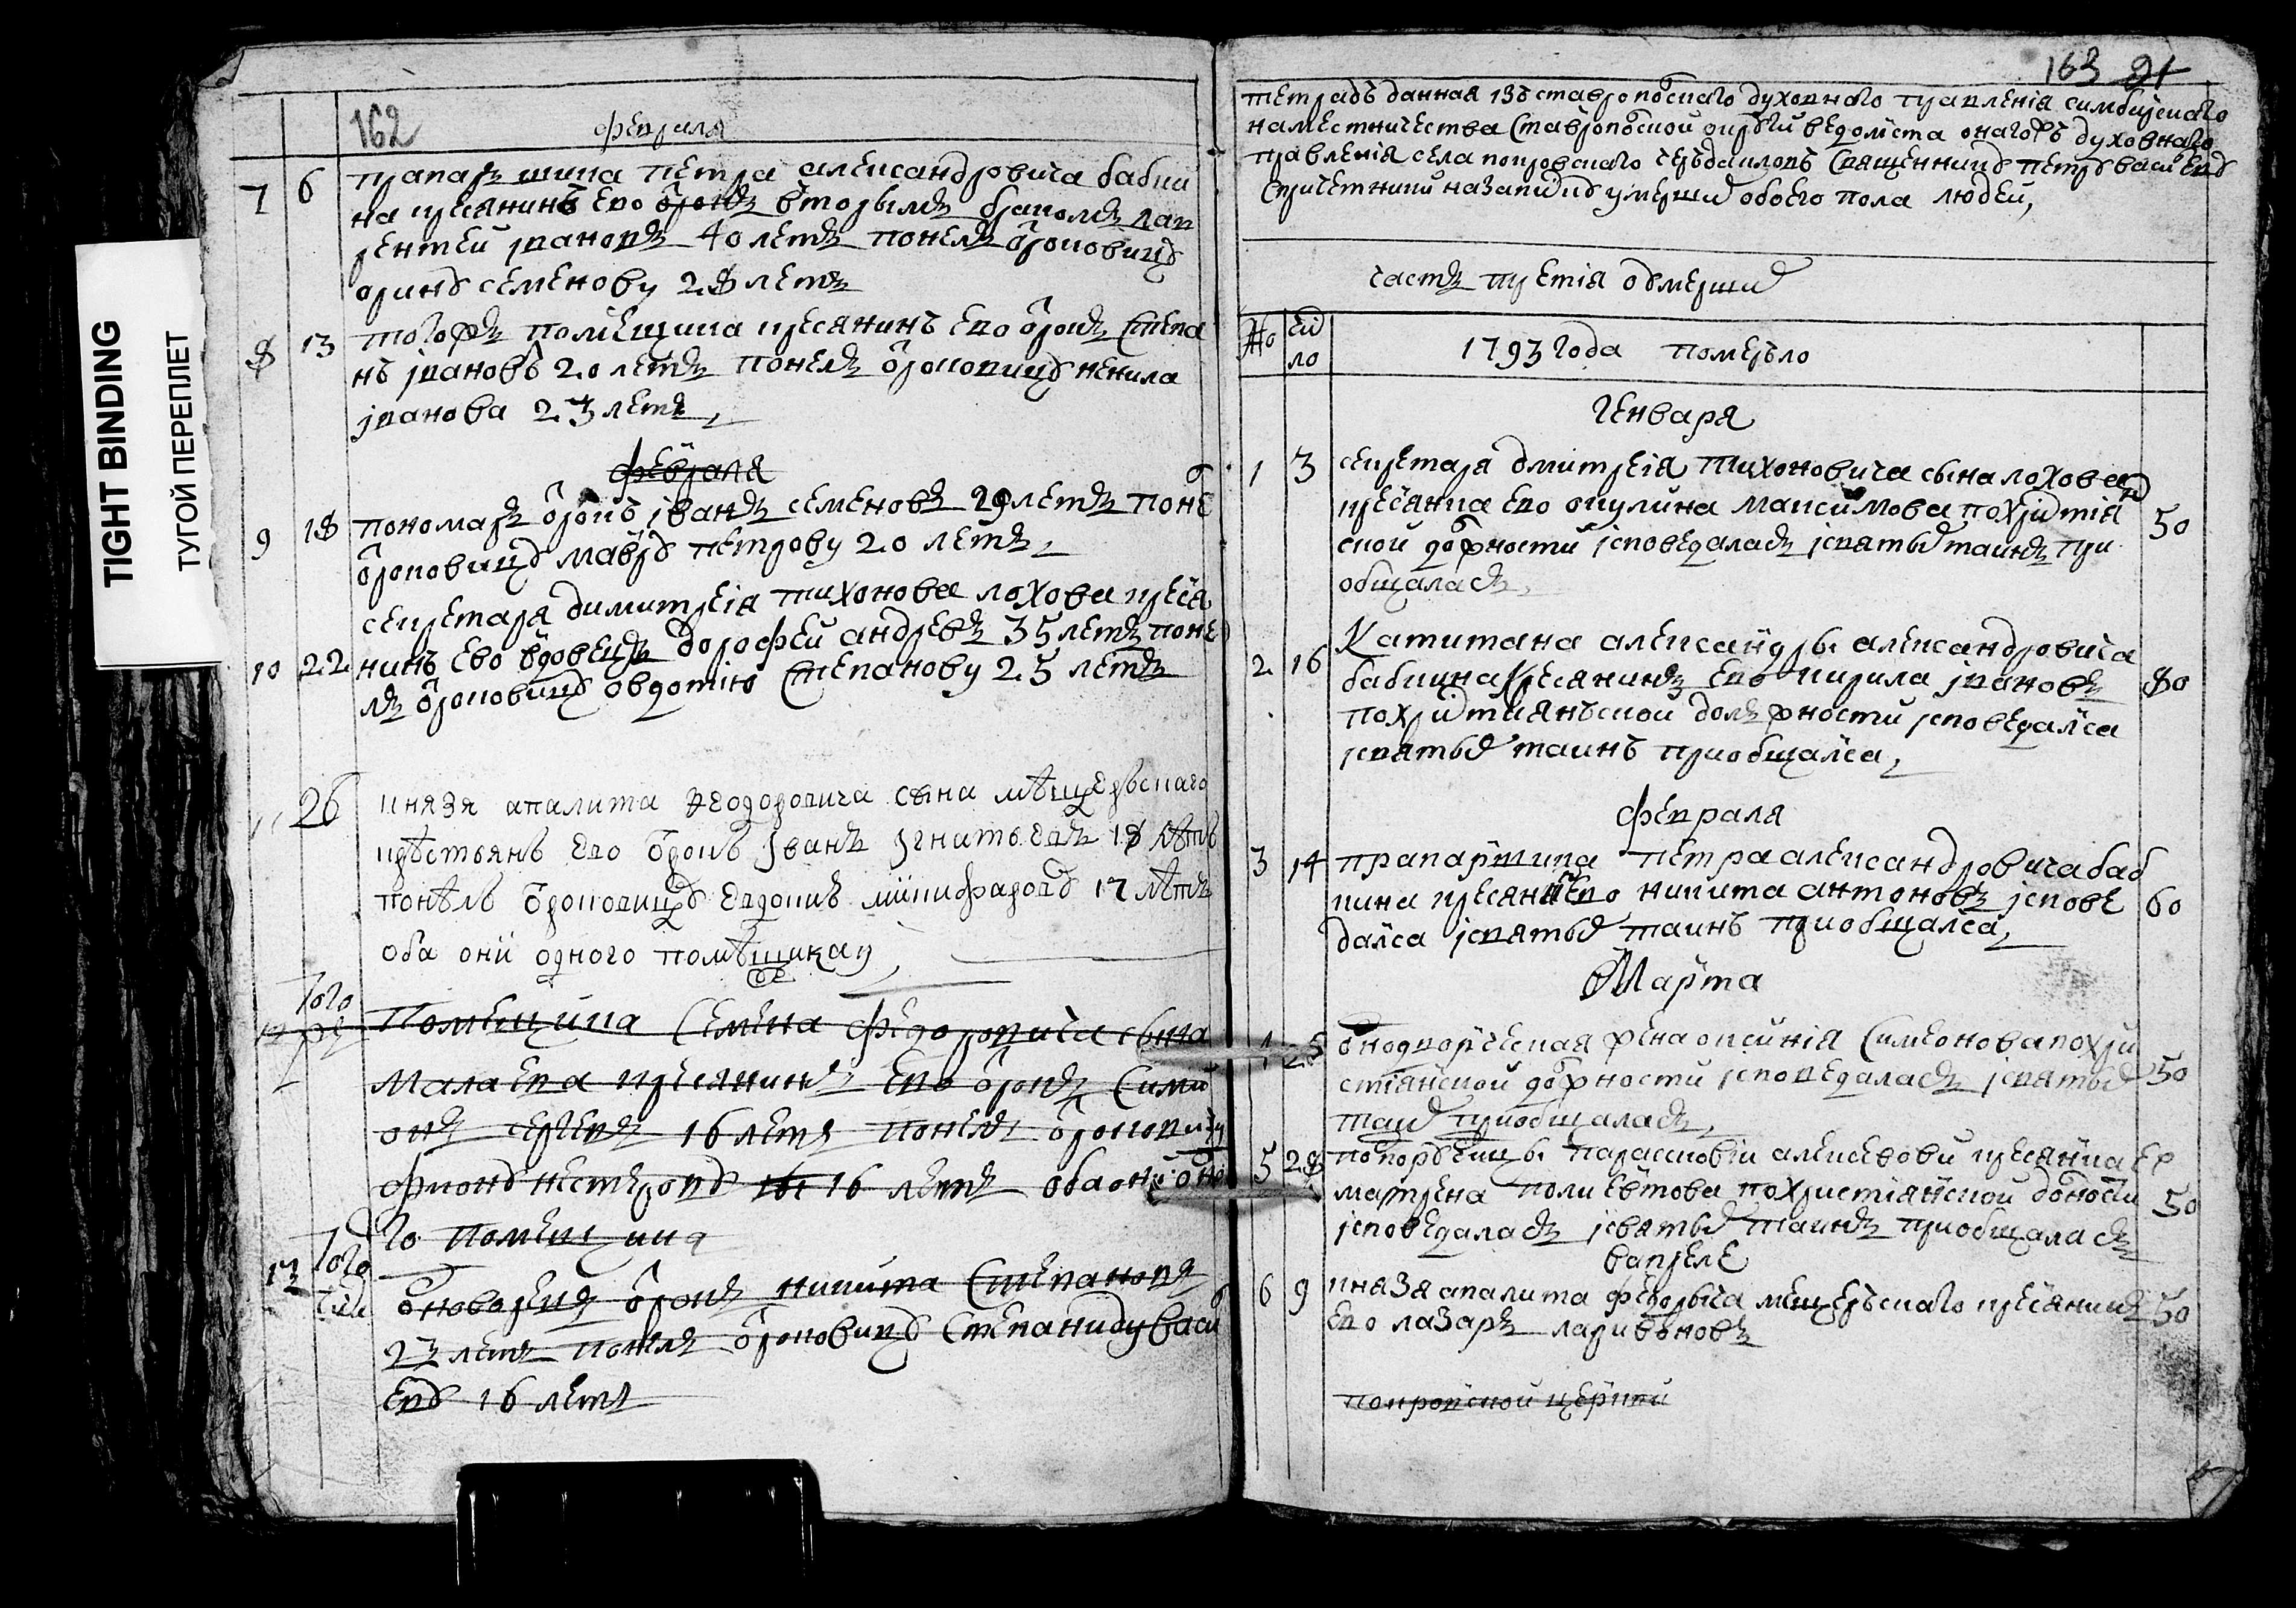 TIGHT BINDING
ТУГОЙ ПЕРЕПЛЕТ
162
февраля
7 6 прапарщика петра александровича бабки
на кресянинъ ево отрокъ вторымъ бракомъ лав
рентей ивановъ 40 летъ понелъ отроковицу
орину семенову 28 летъ
8 13 тогожъ помещика кресянинъ ево отрокъ степа
нъ ивановъ 20 летъ понелъ отроковицу ненила
иванова 23 летъ,
февраля
9 18 пономаръ отрокъ иванъ семеновъ 29 летъ поне
отроковицу мавру петрову 20 летъ,
секретаря димитрея тихонова лохова кресья
10 22 нинъ ево вдовецъ дорофей андревъ 35 летъ поне
лъ отроковицу овдотию степанову 25 летъ
11 26 князя апалита феодоровича сына мѣщерьскаго
крѣстьянъ ево отрокъ иванъ игнатьевъ 18 лѣтъ
понѣлъ отроковицу 17 лѣтъ
оба они одного помѣщика
12 того же помещика семена федоровича сына
малаева кресянинъ ево отрокъ сими
онъ сергевъ 16 летъ понелъ отроковицу
нестерову 16 летъ оба они одно
го помещика
13 того числа отрокъ никита степановъ
23 летъ понелъ отроковицу степаниду васи
еву 16 летъ
163 91
тетрадь данная изъ ставропоского духовнаго правления симбирскаго
наместничества ставропоской округи ведомста онагожъ духовнаго
правления села покровскаго священнику петру васи еву
спричетники назаписку умерших обоего пола людей,
часть третия обмерших
№ число 1793 года померьло
генваря
1 3 секретаря дмитрея тихоновича сына лохова
кресянка ево окулина максимова похристия 50
ской должности исповедалась исвятых таинъ при
общалась,
2 16 капитана александры александровича
бабкина кресянинъ ево кирила ивановъ 80
похристиянъской должности исповедался
исвятых таинъ приобщался,
февраля
3 14 прапарщика петра александровича баб
кина кресяни ево никита антоновъ испове 60
дался исвятых таинъ приобщался,
марта
4 25 однодворческая жена ксиния симеонова похри
стиянской должности исповедалась исвятых 50
таи приобщалась,
5 28 парасковьи алексеевой кресянка ее
матрена поликетова похристиянской должности 50
исповедалась исвятых таинъ приобщалась
вапреле
6 9 князя апалита федорыча мещерьскаго кресянинъ 50
ево лазаръ ларивоновъ
покровской церкви